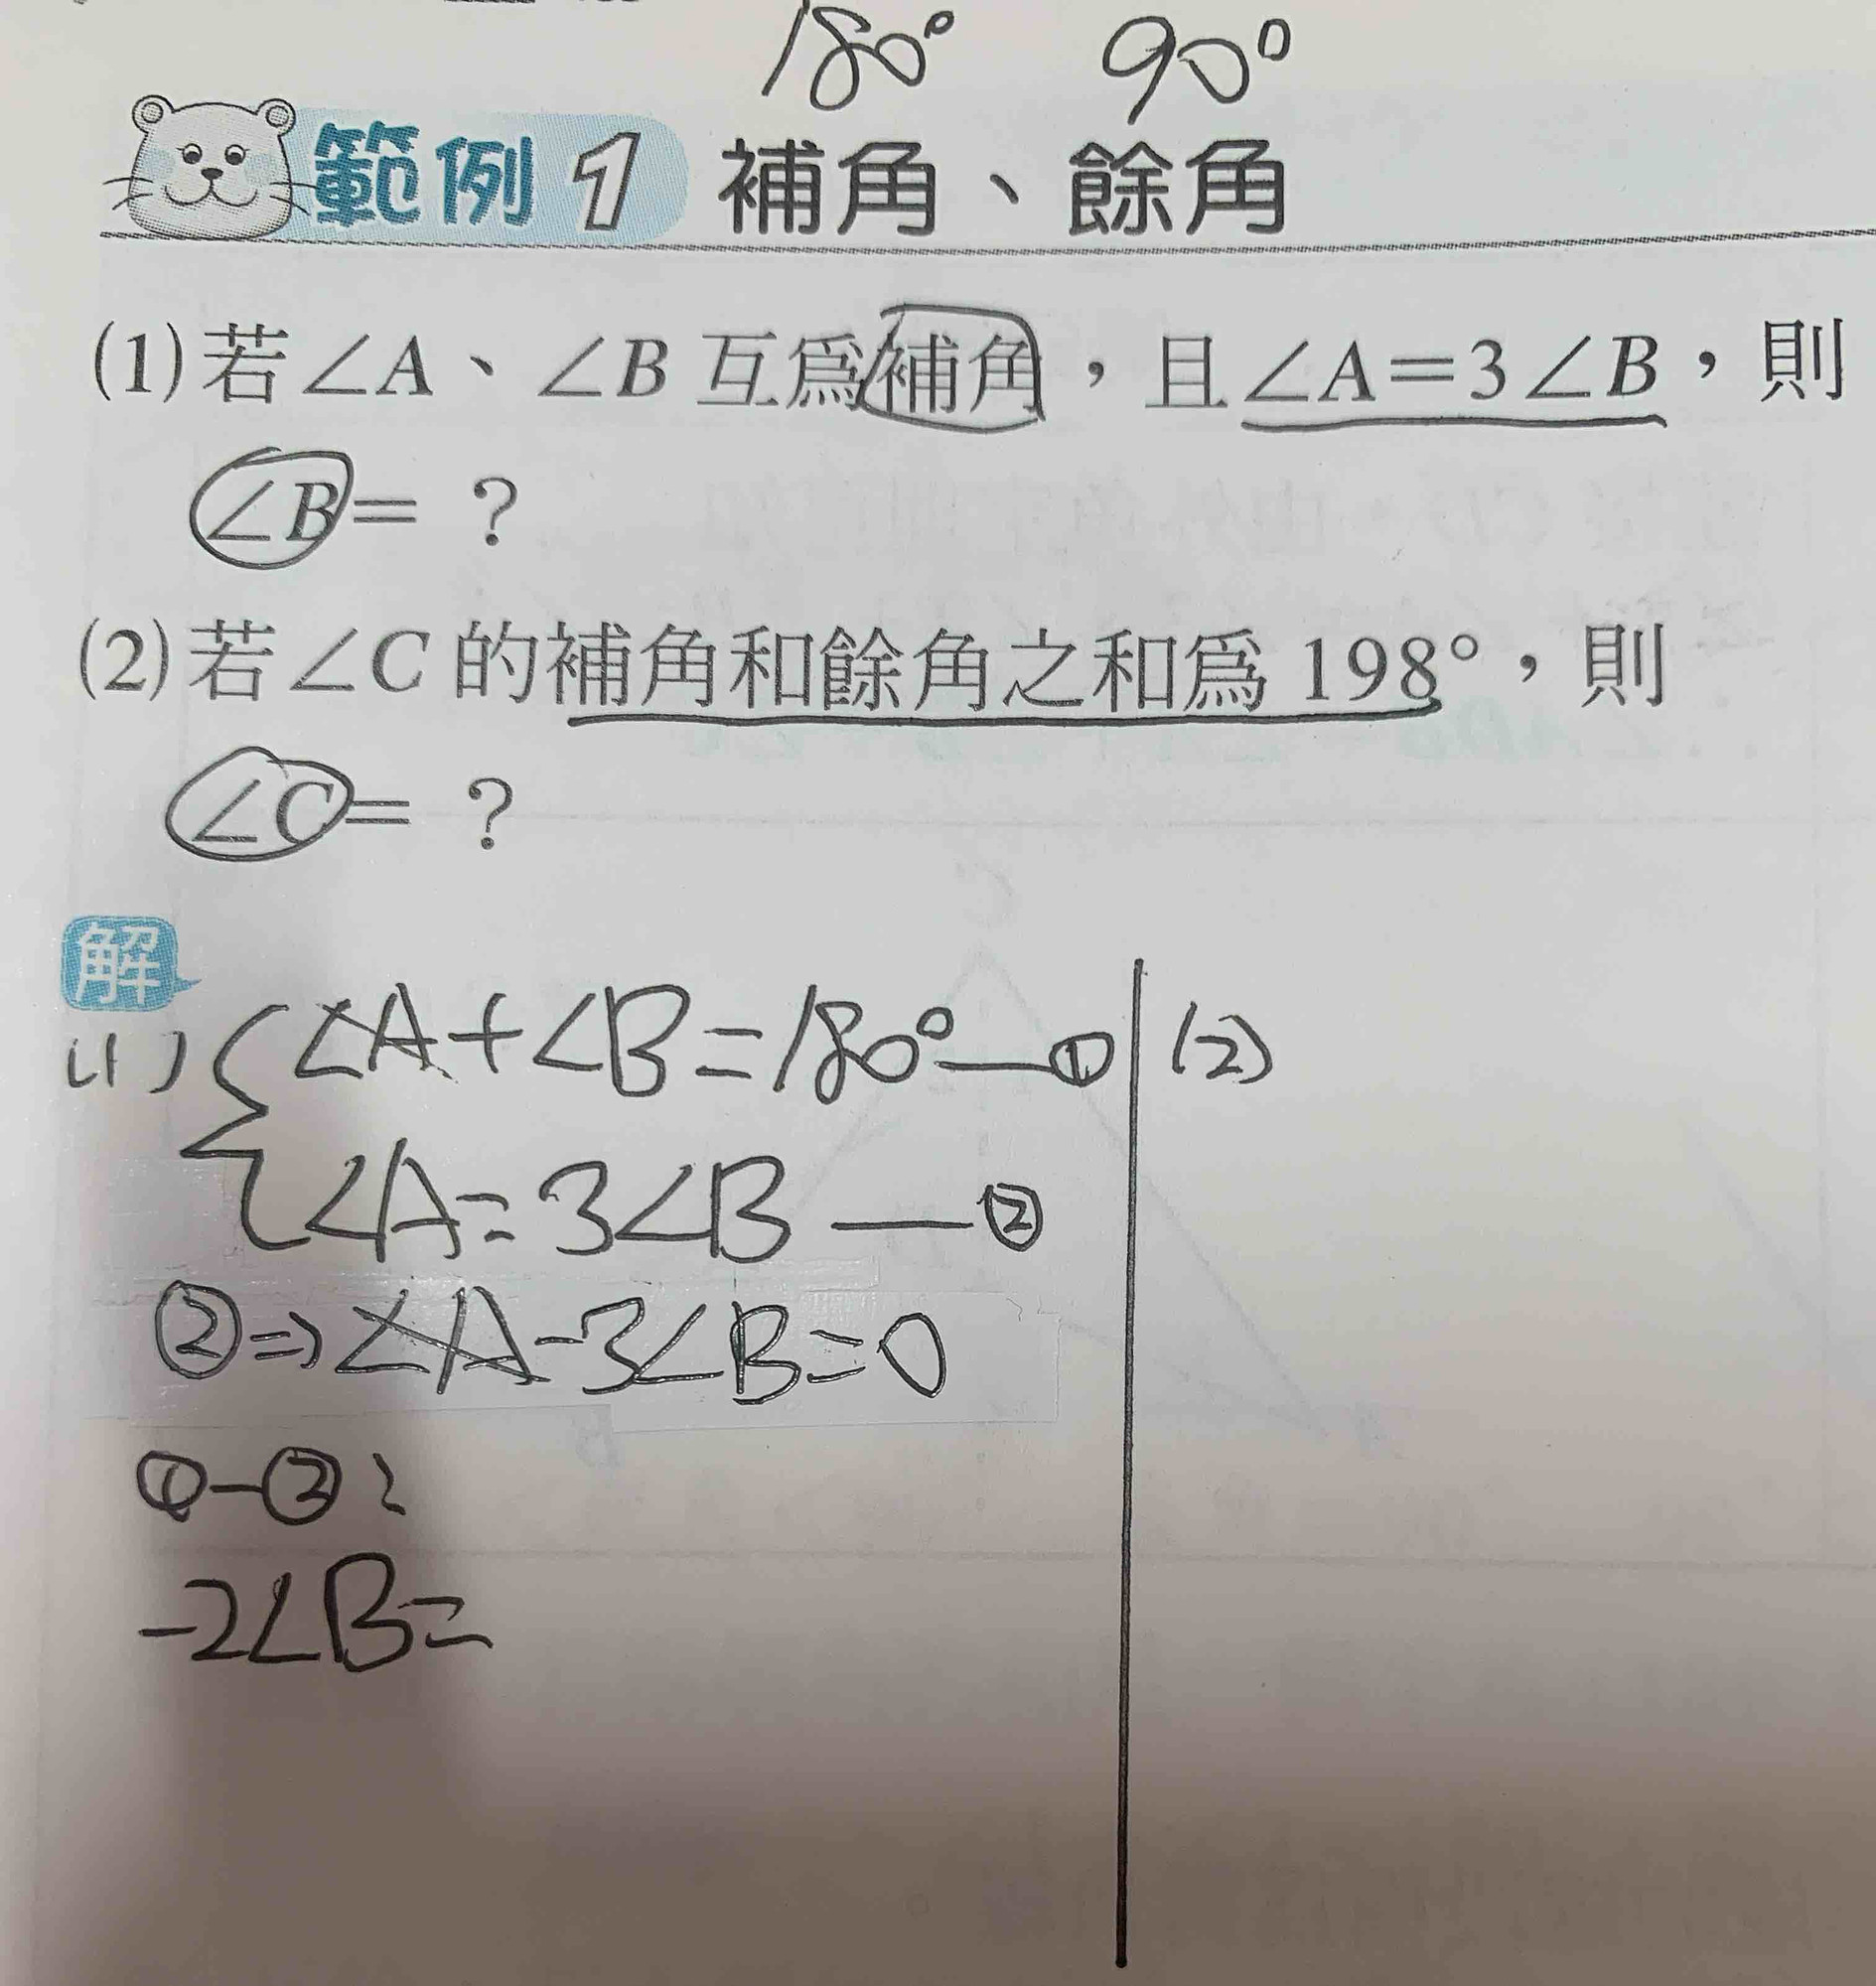 180° 90°
範例 1 補角、餘角
(1)若∠A、∠B 互爲補角，且∠A=3∠B，則
∠B= ？
(2)若∠C 的補角和餘角之和爲 198°，則
∠C= ？
解
(1) ∠A+∠B=180°—① (2)
∠A=3∠B —②
②⇒∠A-3∠B=0
①-②:
-2∠B=